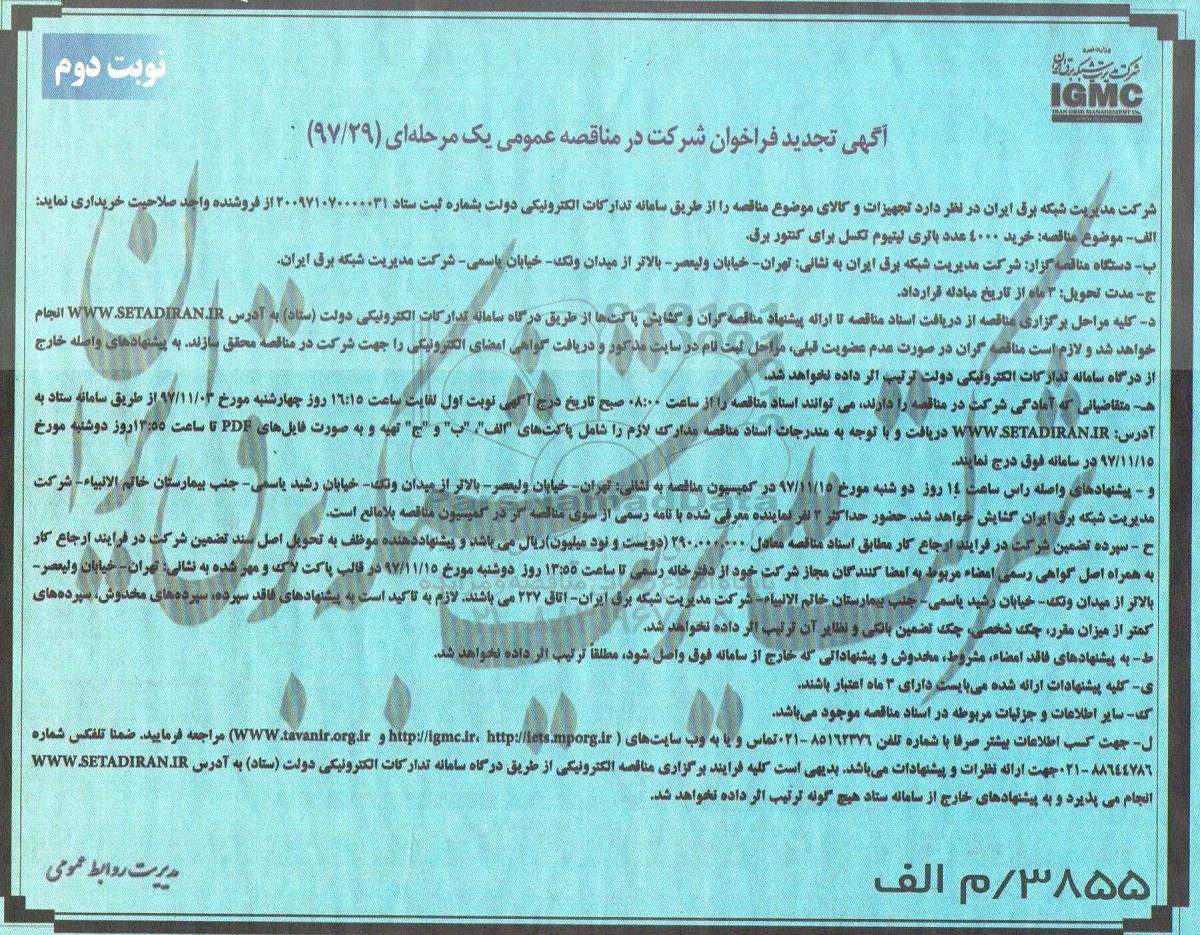 نوبت دوم
وزارت نیرو
شرکت مدیریت شبکه برق ایران
IGMC
IRAN GRID MANAGEMENT Co.
آگهی تجدید فراخوان شرکت در مناقصه عمومی یک مرحله‌ای (۹۷/۲۹)
شرکت مدیریت شبکه برق ایران در نظر دارد تجهیزات و کالای موضوع مناقصه را از طریق سامانه تدارکات الکترونیکی دولت بشماره ثبت ستاد ۲۰۰۹۷۱۰۷۰۰۰۰۰۳۱ از فروشنده واجد صلاحیت خریداری نماید:
الف- موضوع مناقصه: خرید ۴۰۰۰ عدد باتری لیتیوم تکسل برای کنتور برق.
ب- دستگاه مناقصه گزار: شرکت مدیریت شبکه برق ایران به نشانی: تهران- خیابان ولیعصر- بالاتر از میدان ونک- خیابان یاسمی- شرکت مدیریت شبکه برق ایران.
ج- مدت تحویل: ۳ ماه از تاریخ مبادله قرارداد.
د- کلیه مراحل برگزاری مناقصه از دریافت اسناد مناقصه تا ارائه پیشنهاد مناقصه‌گران و گشایش پاکت‌ها از طریق درگاه سامانه تدارکات الکترونیکی دولت (ستاد) به آدرس WWW.SETADIRAN.IR انجام
خواهد شد و لازم است مناقصه گران در صورت عدم عضویت قبلی، مراحل ثبت نام در سایت مذکور و دریافت گواهی امضای الکترونیکی را جهت شرکت در مناقصه محقق سازند. به پیشنهادهای واصله خارج
از درگاه سامانه تدارکات الکترونیکی دولت ترتیب اثر داده نخواهد شد.
هـ- متقاضیانی که آمادگی شرکت در مناقصه را دارند، می توانند اسناد مناقصه را از ساعت ۰۸:۰۰ صبح تاریخ درج آگهی نوبت اول لغایت ساعت ۱۶:۱۵ روز چهارشنبه مورخ ۹۷/۱۱/۰۳ از طریق سامانه ستاد به
آدرس: WWW.SETADIRAN.IR دریافت و با توجه به مندرجات اسناد مناقصه مدارک لازم را شامل پاکت‌های "الف"، "ب" و "ج" تهیه و به صورت فایل‌های PDF تا ساعت ۱۳:۵۵روز دوشنبه مورخ
۹۷/۱۱/۱۵ در سامانه فوق درج نمایند.
و - پیشنهادهای واصله راس ساعت ۱۴ روز دو شنبه مورخ ۹۷/۱۱/۱۵ در کمیسیون مناقصه به نشانی: تهران- خیابان ولیعصر- بالاتر از میدان ونک- خیابان رشید یاسمی- جنب بیمارستان خاتم الانبیاء- شرکت
مدیریت شبکه برق ایران گشایش خواهد شد. حضور حداکثر ۲ نفر نماینده معرفی شده با نامه رسمی از سوی مناقصه گر در کمیسیون مناقصه بلامانع است.
ح - سپرده تضمین شرکت در فرایند ارجاع کار مطابق اسناد مناقصه معادل ۲۹۰.۰۰۰.۰۰۰ (دویست و نود میلیون)ریال می باشد و پیشنهاددهنده موظف به تحویل اصل سند تضمین شرکت در فرایند ارجاع کار
به همراه اصل گواهی رسمی امضاء مربوط به امضا کنندگان مجاز شرکت خود از دفترخانه رسمی تا ساعت ۱۳:۵۵ روز دوشنبه مورخ ۹۷/۱۱/۱۵ در قالب پاکت لاک و مهر شده به نشانی: تهران- خیابان ولیعصر-
بالاتر از میدان ونک- خیابان رشید یاسمی- جنب بیمارستان خاتم الانبیاء- شرکت مدیریت شبکه برق ایران- اتاق ۲۲۷ می باشند. لازم به تاکید است به پیشنهادهای فاقد سپرده، سپرده‌های مخدوش، سپرده‌های
کمتر از میزان مقرر، چک شخصی، چک تضمین بانکی و نظایر آن ترتیب اثر داده نخواهد شد.
ط- به پیشنهادهای فاقد امضاء، مشروط، مخدوش و پیشنهاداتی که خارج از سامانه فوق واصل شود، مطلقاً ترتیب اثر داده نخواهد شد.
ی- کلیه پیشنهادات ارائه شده می‌بایست دارای ۳ ماه اعتبار باشند.
ک- سایر اطلاعات و جزئیات مربوطه در اسناد مناقصه موجود می‌باشد.
ل- جهت کسب اطلاعات بیشتر صرفا با شماره تلفن ۸۵۱۶۲۳۷۶ -۰۲۱تماس و یا به وب سایت‌های ( http://igmc.ir، http://iets.mporg.ir و WWW.tavanir.org.ir) مراجعه فرمایید. ضمنا تلفکس شماره
۸۸۶۴۴۷۸۶ -۰۲۱جهت ارائه نظرات و پیشنهادات می‌باشد. بدیهی است کلیه فرایند برگزاری مناقصه الکترونیکی از طریق درگاه سامانه تدارکات الکترونیکی دولت (ستاد) به آدرس WWW.SETADIRAN.IR
انجام می پذیرد و به پیشنهادهای خارج از سامانه ستاد هیچ گونه ترتیب اثر داده نخواهد شد.
مدیریت روابط عمومی
۳۸۵۵/م الف